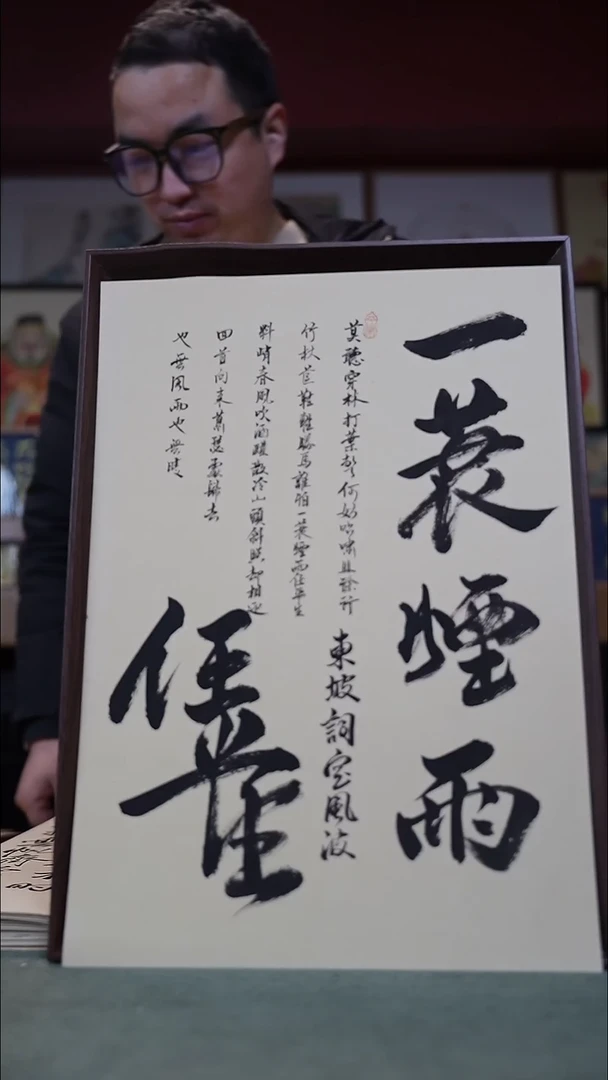 一蓑煙雨
任平生
莫聽穿林打葉聲何妨吟嘯且徐行
竹杖芒鞋輕勝馬誰怕一蓑煙雨任平生
料峭春風吹酒醒微冷山頭斜照却相迎
回首向来蕭瑟處歸去
也無風雨也無晴
東坡詞定風波